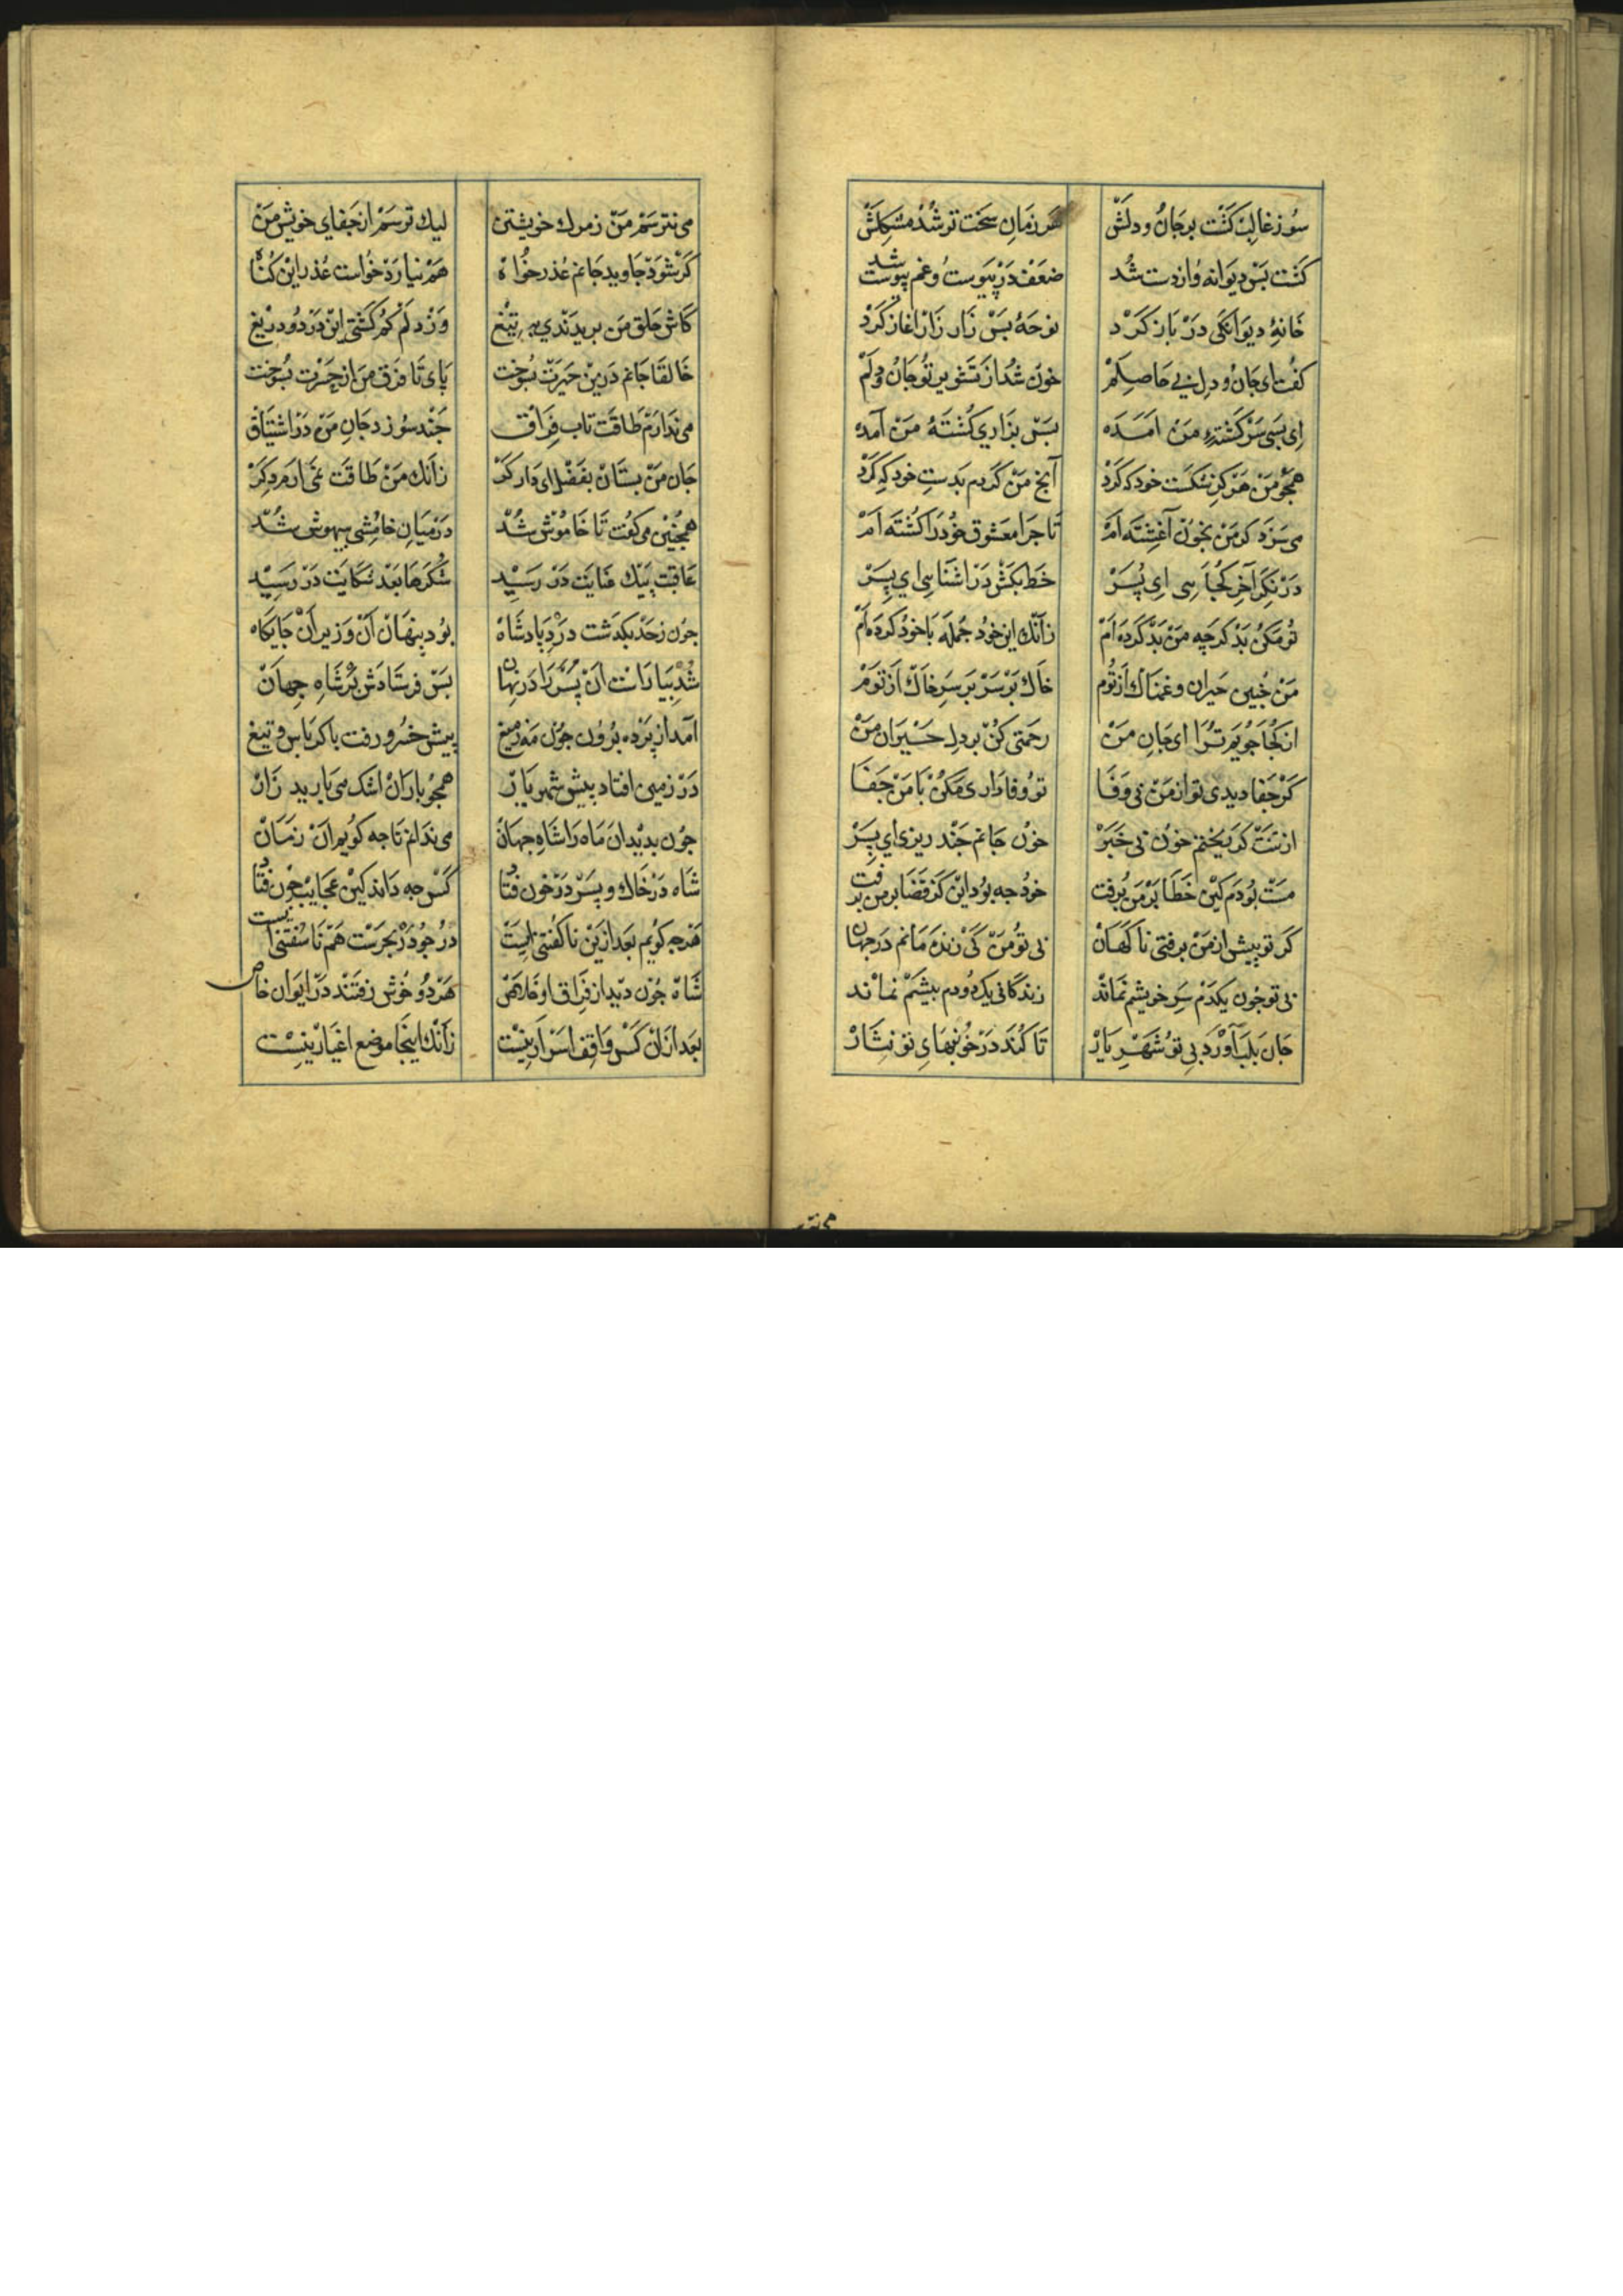 سوز غالب گشت بر جان و دلش هر زمان سخت تر شد مشکلش
گشت بس دیوانه و از دست شد ضعف در پیوست و غم پیوست شد
خانهٔ دیوانکی در باز کرد نوحهٔ بس زار زار اغاز کرد
کفت ای جان و دل بی حاصلم خون شد از تشویر تو جان و دلم
ای بسی سرکشتهٔ من امده بس بزاری کشتهٔ من آمده
همجو من هرکز شکست خود که کرد آنج من کردم بدست خود که کرد
می سزد کر من بخون آغشته ام تا جرا معشوق خود را کشته ام
در نکر آخر کجایی ای پسر خط بکش در اشنایی ای پسر
تو مکن بد کرچه من بد کرده ام زآنک این خود جمله با خود کرده ام
من جنین حیران و غمناک از توم خاک بر سر بر سر خاک از توم
از کجا جویم ترا ای جان من رحمتی کن بر دل حیران من
کر جفا دیدی تو از من بی وفا تو وفاداری مکن با من جفا
از تنت کر ریختم خون بی خبر خون جانم جند ریزی ای پسر
مست بودم کین خطا بر من برفت خود جه بود این کز قضا بر من برفت
کر تو پیش از من برفتی ناکهان بی تو من کی زنده مانم در جهان
بی تو جون یکدم سر خویشم نماند زندکانی یک دو دم بیشم نماند
جان بلب آورد بی تو شهریار تا کند در خونبهای تو نثار
می نترسم من ز مرک خویشتن لیک ترسم از جفای خویش من
کر شود جاوید جانم عذر خواه هم نیارد خواست عذر این کناه
کاش حلق من بریدندی به تیغ وز دلم کم کشتی این درد و دریغ
خالقا جانم درین حیرت بسوخت پای تا فرق من از حسرت بسوخت
می ندارم طاقت تاب فراق جند سوزد جان من در اشتیاق
جان من بستان بفضل ای دادکر زانک من طاقت نمی ارم دکر
همجنین می کفت تا خاموش شد در میان خامشی بیهوش شد
عاقبت پیک عنایت در رسید شکرها بعد شکایت در رسید
جون ز حد بکذشت درد پادشاه بود پنهان آن وزیر آن جایکاه
شد بیاراست ان پسر را در نهان پس فرستادش بر شاه جهان
امد از پرده برون جون مه ز میغ پیش خسرو رفت با کرباس و تیغ
در زمین افتاد پیش شهریار همجو باران اشک می بارید زار
جون بدید آن ماه را شاه جهان می ندانم تا جه کویم ان زمان
شاه در خاک و پسر در خون فتاد کس جه داند کین عجایب جون فتاد
هرجه کویم بعد ازین ناکفتنی است در جو در بحرست هم ناسفتنی است
شاه جون دید از فراق او خلاص هر دو خوش رفتند در ایوان خاص
بعد ازان کس واقف اسرار نیست زآنک اینجا موضع اغیار نیست